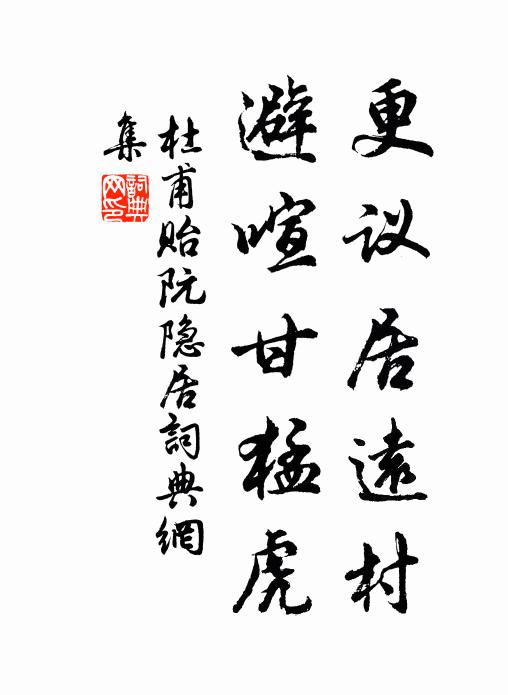 更议居遠村
避喧甘猛虎
杜甫貽阮隐居詞典網
集
詞典
网印